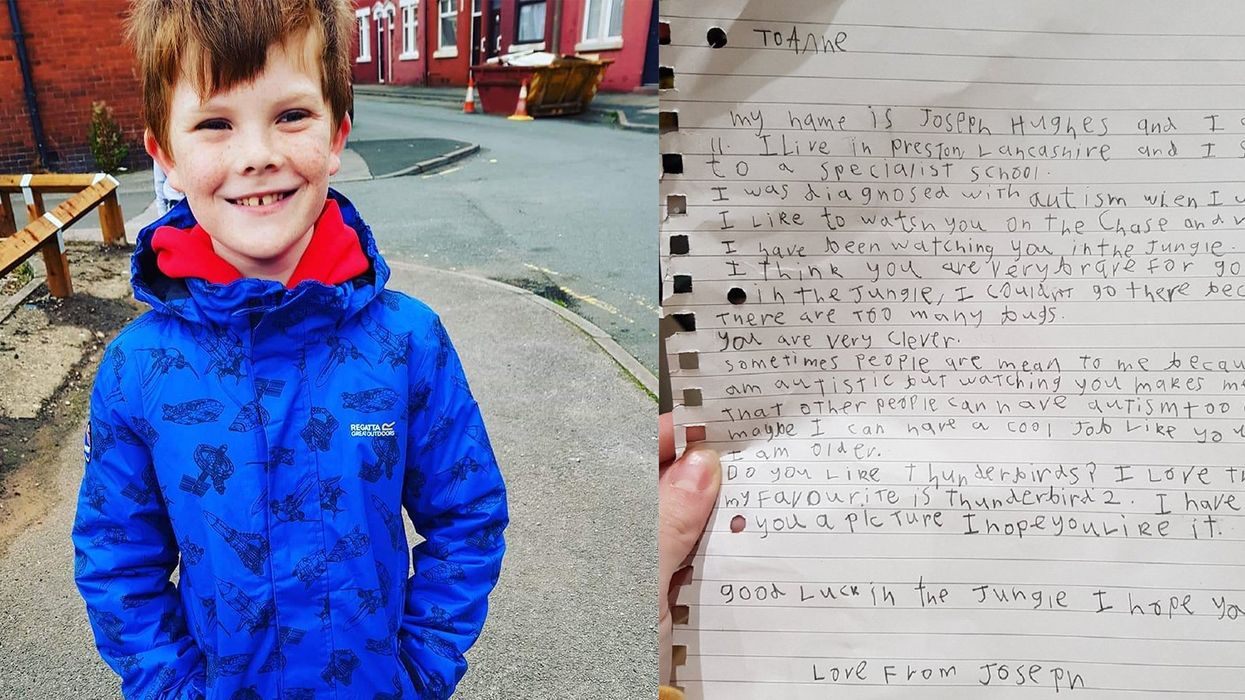 REGATTA
GREAT OUTDOORS
To Anne
my name is Joseph Hughes and I
11. I Live in Preston, Lancashire and I
to a specialist school.
I was diagnosed with autism when I
I Like to watch you on the Chase and
I have been watching you in the Jungle.
I think you are very brave for
in the Jungle, I couldn't go there
There are too many bugs.
you are very clever.
sometimes people are mean to me
am autistic but watching you makes
that other people can have autism too
maybe I can have a cool Job Like
I am older.
Do you Like Thunderbirds? I Love
my favourite is Thunderbird 2. I have
you a picture I hope you Like it.
good Luck in the Jungle I hope
Love From Joseph